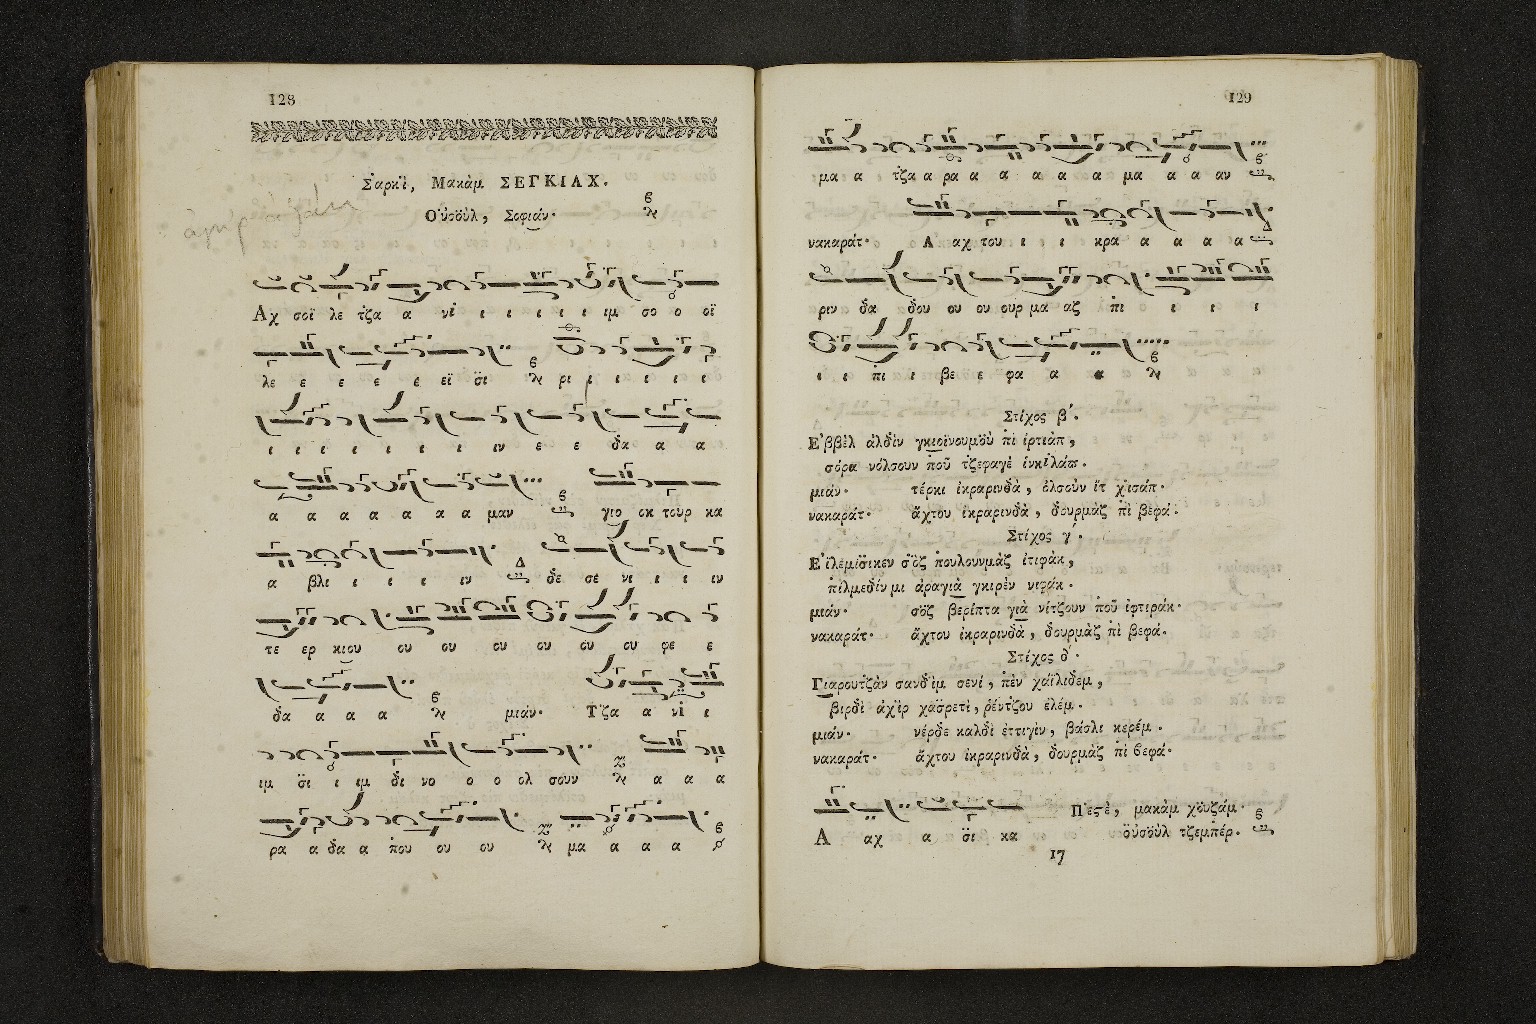 128
Σ̇αρκὶ, Μακὰμ ΣΕΓΚΙΑΧ.
Οὐσοὺλ, Σοφιάν.
Αχ σοϊ λε τ̇ζα α νἰ ι ι ι ι ι ιμ σο ο οϊ
λε ε ε ε ε εϊ σ̈ι ρι ι ι ι ι ι
ι ι ι ι ι ι ι ιν ε ε δα α α
α α α α α α α μαν γιο οκ τουρ κα
α βλι ι ι ι ιν δε σε νι ι ι ιν
τε ερ κιου ου ου ου ου ου ου φε ε
δα α α α μιάν. Τ̇ζα α νἰ ι
ιμ σ̈ι ι ιμ δι νο ο ο ολ σουν α α α
ρα α δα α π̇ου ου ου μα α α α
129
μα α τ̇ζα α ρα α α α α α μα α α αν
νακαράτ. Α αχ του ι ι κρα α α α α
ριν δα δου ου ου ουρ μα αζ π̇ι ι ι ι
ι ι π̇ι ι βε ε φα α α
Στίχος β'.
Ε'ββὲλ ἀλδὶν γκιοϊνουμοὺ π̇ὶ ἰρτιὰπ,
σόρα νόλσουν π̇οῦ τ̇ζεφαγὲ ἰνκιλάπ.
μιάν. τέρκι ἰκραρινδὰ, ὀλσοὺν ἴτ χισάπ.
νακαράτ. ἄχτου ἰκραρινδὰ, δουρμὰζ π̇ὶ βεφά.
Στίχος γ'.
Ε'ϊλεμίσ̈ικεν σὂζ π̇ουλουνμὰζ ἰτιφὰκ,
π̇ιλμεδίν μι ἀραγιὰ γκιρὲν νιφάκ.
μιάν. σὂζ βερίπτα γιὰ νίτζουν π̇οῦ ἰφτιράκ.
νακαράτ. ἄχτου ἰκραρινδὰ, δουρμὰζ π̇ὶ βεφά.
Στίχος δ'.
Γιαρουτ̇ζὰν σανδὶμ σενί, π̇ὲν χαϊλιδεμ,
βιρδὶ ἀχὶρ χασ̈ρετὶ, ῥέντ̇ζου ἐλέμ.
μιάν. νέρδε καλδὶ ἐττιγὶν, βάσλι κερέμ.
νακαράτ. ἄχτου ἰκραρινδὰ, δουρμὰζ π̇ὶ βεφά.
Πεστὲ, μακὰμ χουζάμ.
Α αχ α σ̈ι κα οὐσοὺλ τζεμπέρ.
17